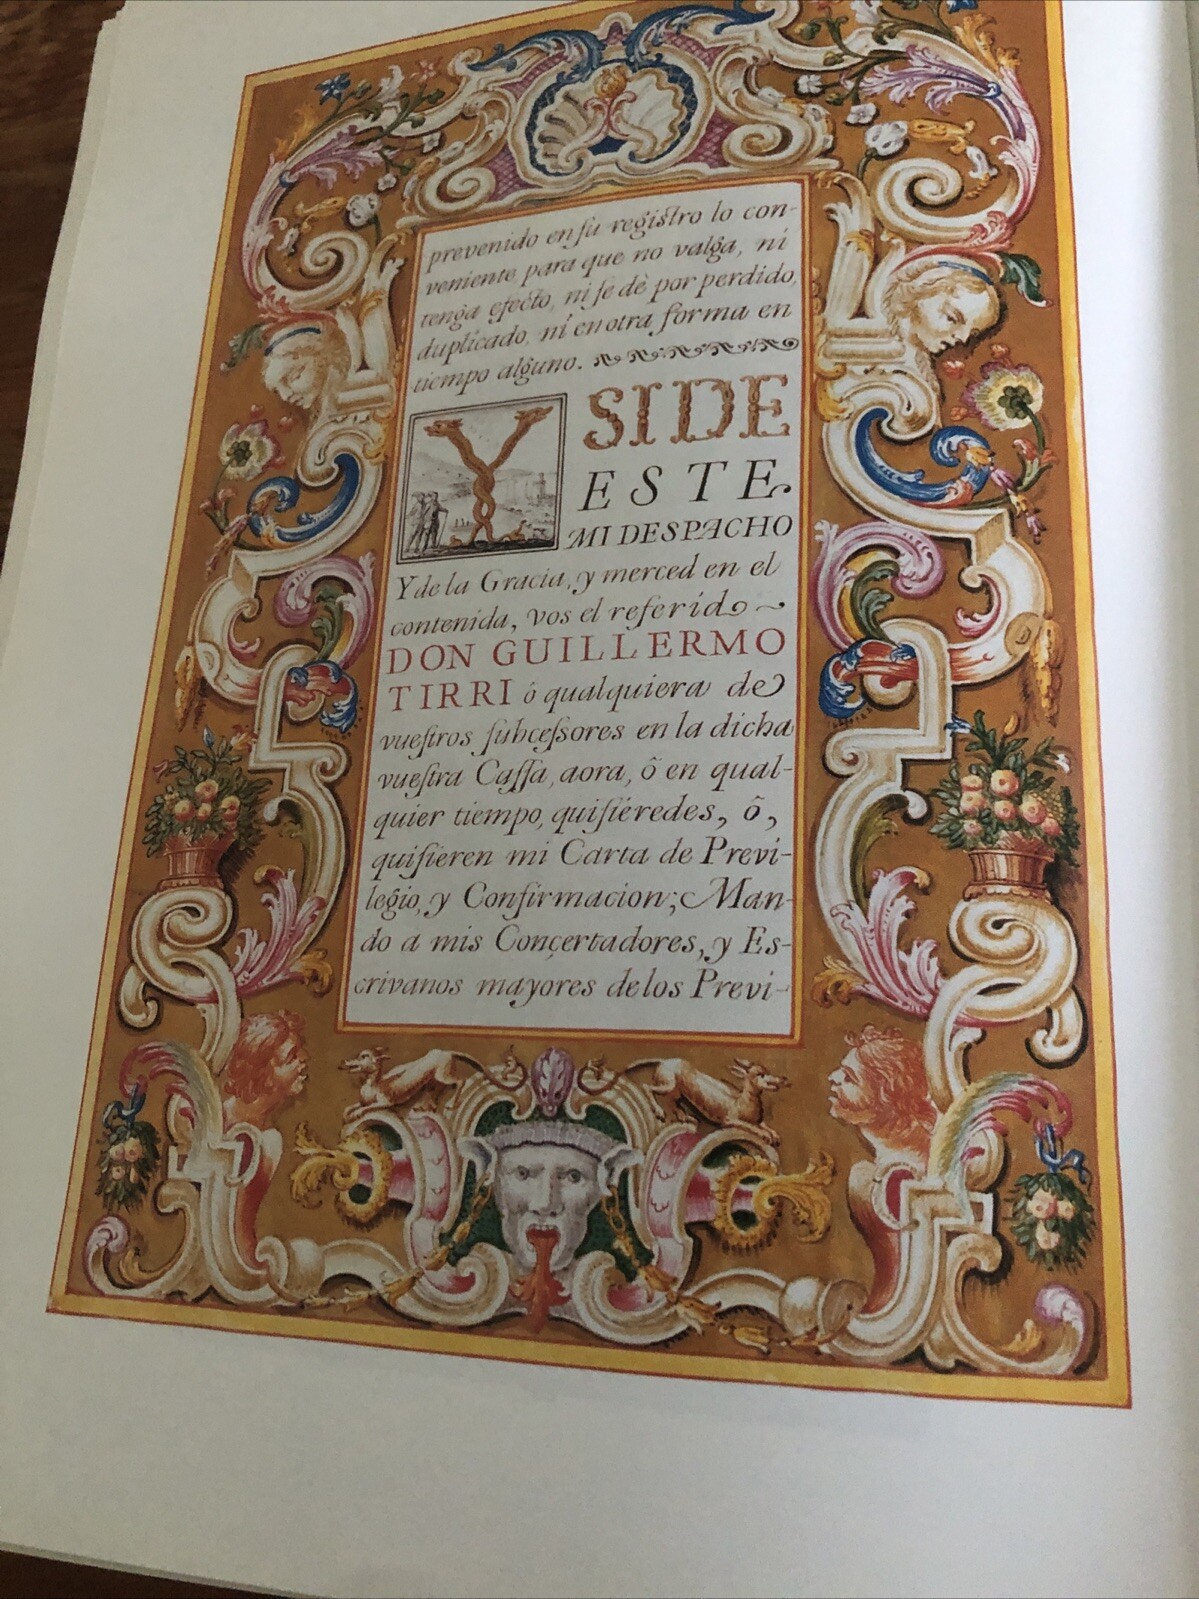 prevenido en ſu registro lo con-
veniente para que no valga, ni
tenga efecto, ni ſe dè por perdido,
duplicado, ni en otra forma en
tiempo alguno.
Y SIDE
ESTE
MI DESPACHO
Y de la Gracia, y merced en el
contenida, vos el referido
DON GUILLERMO
TIRRI ó qualquiera de
vueſtros ſubceſsores en la dicha
vueſtra Caſſa, aora, ô en qual-
quier tiempo, quiſiéredes, ô,
quiſieren mi Carta de Previ-
legio, y Confirmacion; Man-
do a mis Conçertadores, y Es-
crivanos mayores de los Previ-